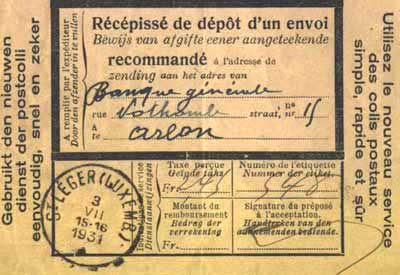 Gebruikt den nieuwen
dienst der postcolli
eenvoudig, snel en zeker
A remplir par l'expéditeur
Door den afzender in te vullen
Récépissé de dépôt d'un envoi
Bewijs van afgifte eener aangeteekende
recommandé à l'adresse de
zending aan het adres van
Banque générale
rue straat, n° nr 15
à
te arlon
Utilisez le nouveau service
des colis postaux
simple, rapide et sûr
ST LEGER (LUXEMB.)
3
VII
15-16
1931
service
Dienstaanwijzingen
Taxe perçue
Geïnde taks
Fr.
Numéro de l'étiquette
Nummer der etiket.
Montant du
remboursement
Bedrag der
verrekening
Fr.
Signature du préposé
à l'acceptation.
Handteeken van den
aannemenden bediende.